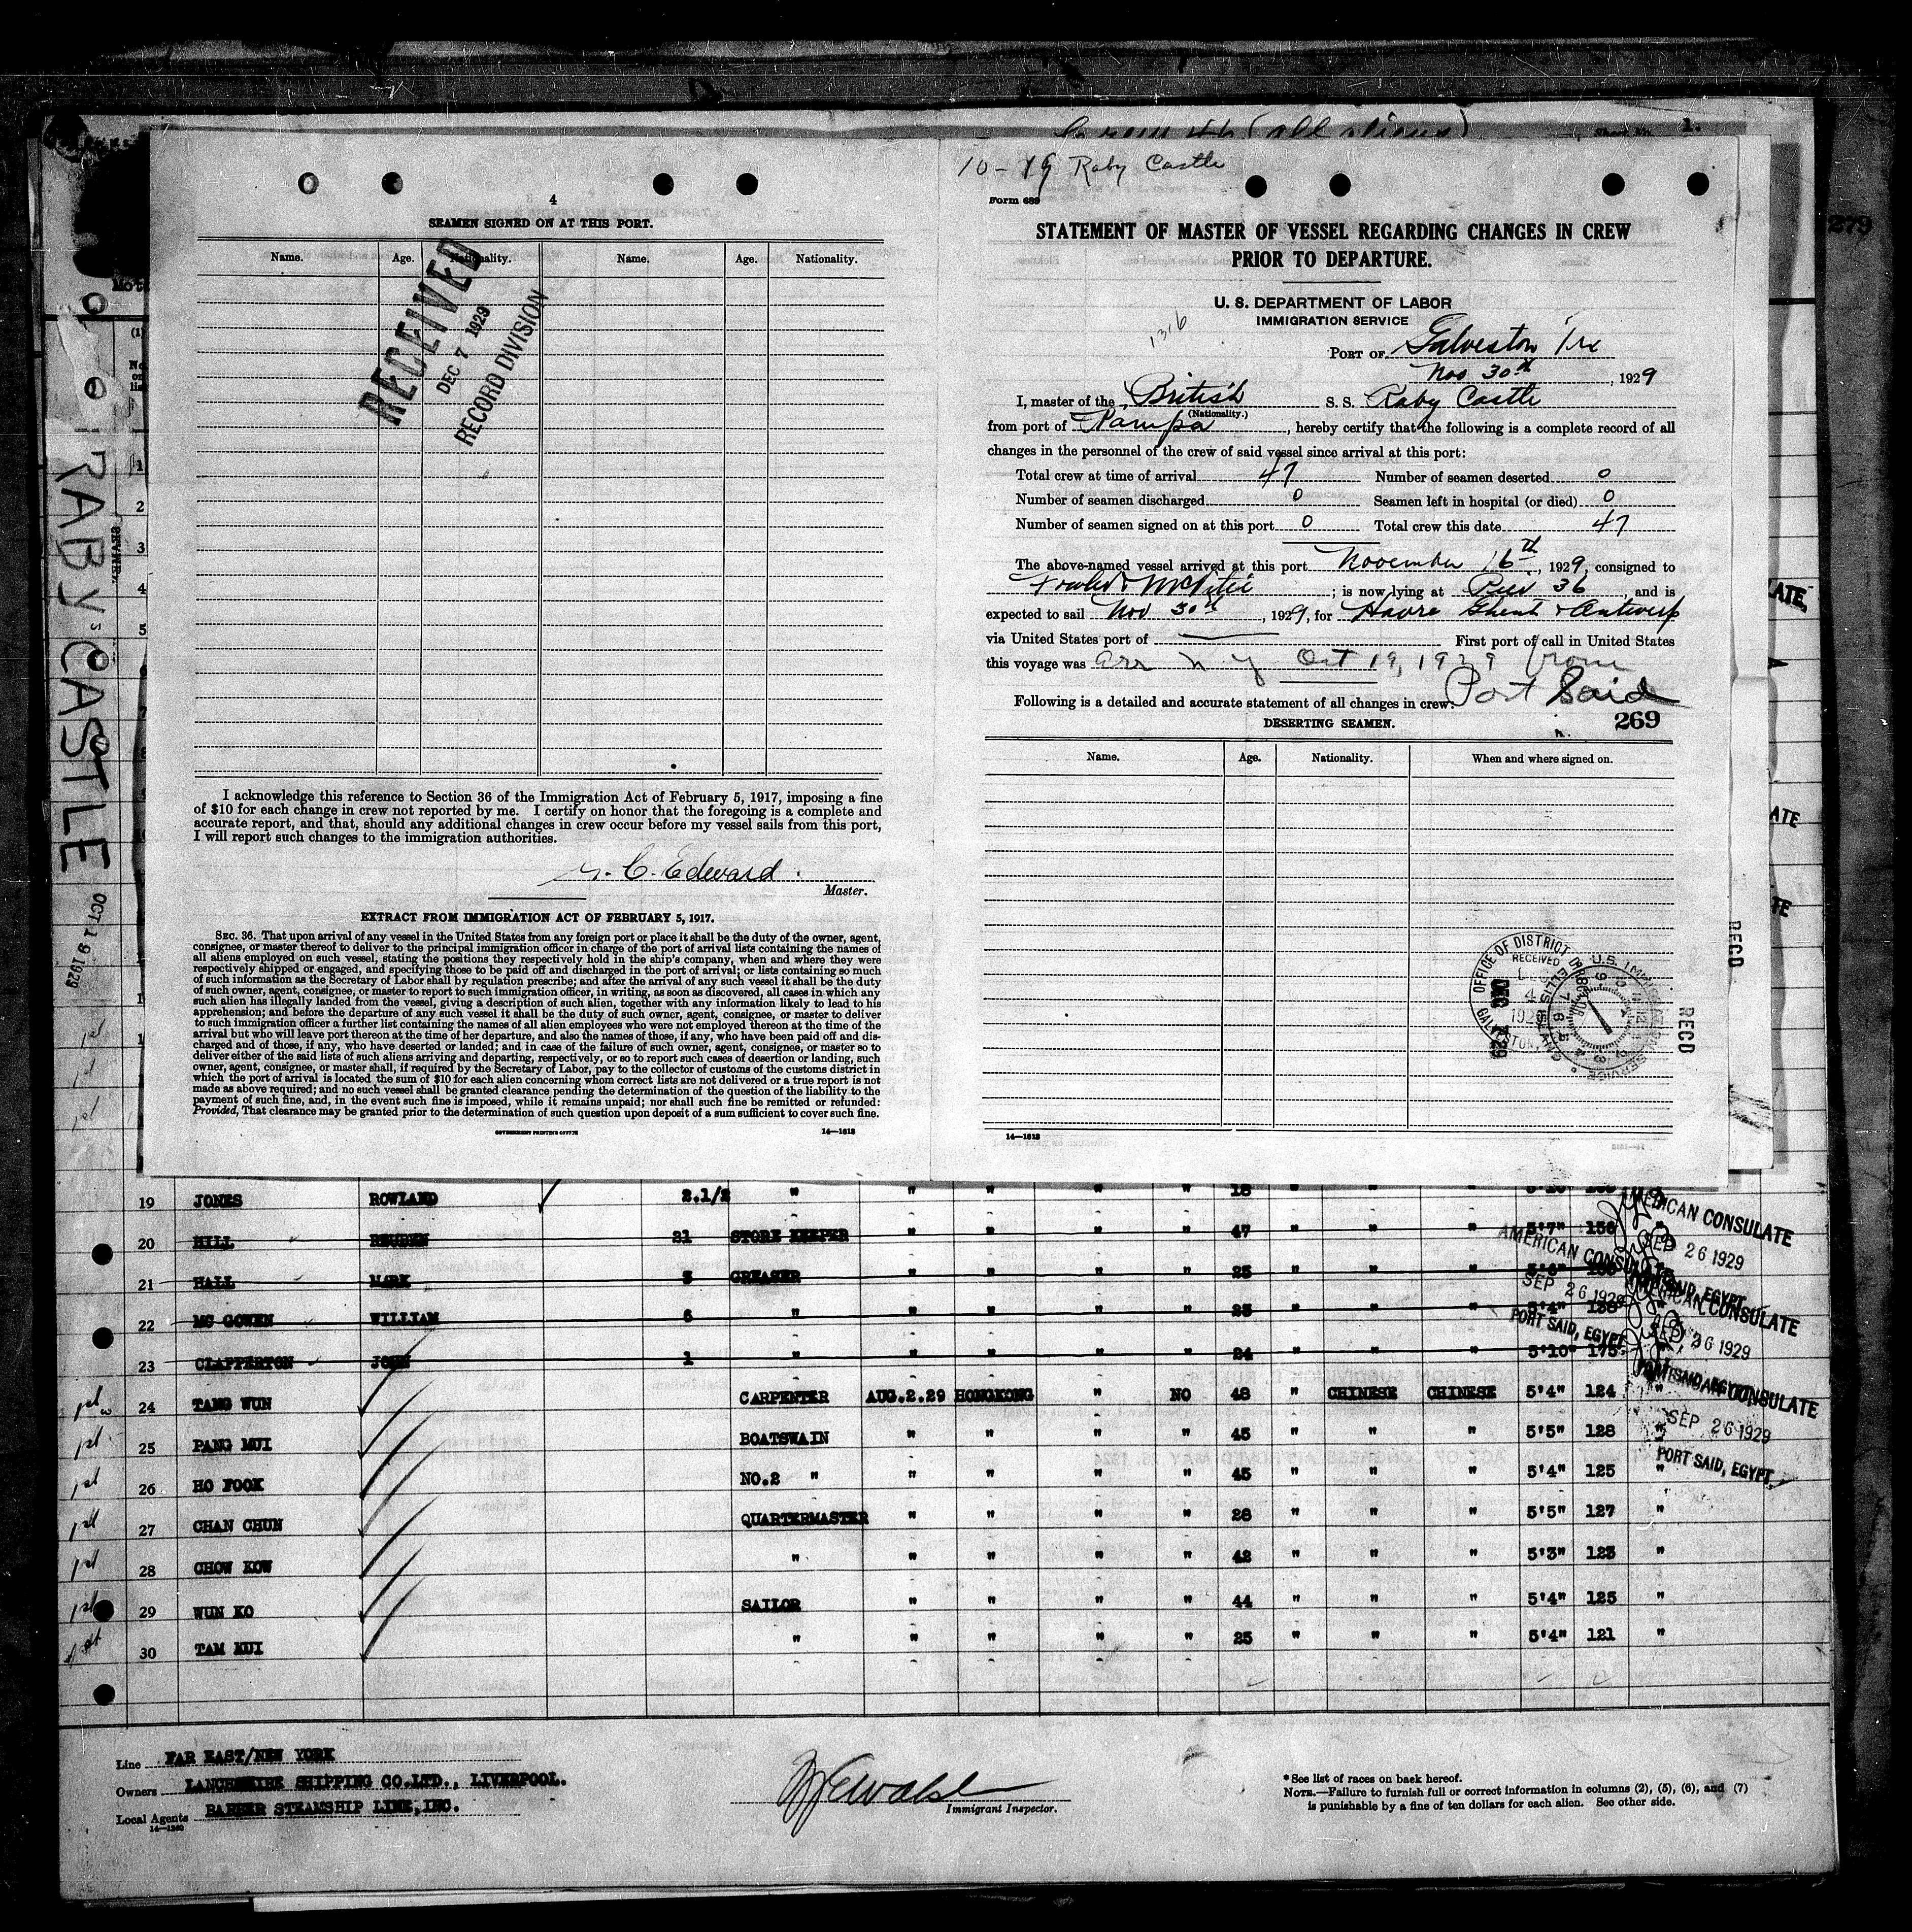 Form 44 (all aliens)
Sheet No. 1.
279
10-19 Raby Castle
4
SEAMEN SIGNED ON AT THIS PORT.
Name. Age. Nationality. Name. Age. Nationality.
RECEIVED
DEC 7 1929
RECORD DIVISION
I acknowledge this reference to Section 36 of the Immigration Act of February 5, 1917, imposing a fine
of $10 for each change in crew not reported by me. I certify on honor that the foregoing is a complete and
accurate report, and that, should any additional changes in crew occur before my vessel sails from this port,
I will report such changes to the immigration authorities.
C. Edward
Master.
EXTRACT FROM IMMIGRATION ACT OF FEBRUARY 5, 1917.
SEC. 36. That upon arrival of any vessel in the United States from any foreign port or place it shall be the duty of the owner, agent,
consignee, or master thereof to deliver to the principal immigration officer in charge of the port of arrival lists containing the names of
all aliens employed on such vessel, stating the positions they respectively hold in the ship's company, when and where they were
respectively shipped or engaged, and specifying those to be paid off and discharged in the port of arrival; or lists containing so much
of such information as the Secretary of Labor shall by regulation prescribe; and after the arrival of any such vessel it shall be the duty
of such owner, agent, consignee, or master to report to such immigration officer, in writing, as soon as discovered, all cases in which any
such alien has illegally landed from the vessel, giving a description of such alien, together with any information likely to lead to his
apprehension; and before the departure of any such vessel it shall be the duty of such owner, agent, consignee, or master to deliver
to such immigration officer a further list containing the names of all alien employees who were not employed thereon at the time of the
arrival but who will leave port thereon at the time of her departure, and also the names of those, if any, who have been paid off and dis-
charged and of those, if any, who have deserted or landed; and in case of the failure of such owner, agent, consignee, or master so to
deliver either of the said lists of such aliens arriving and departing, respectively, or so to report such cases of desertion or landing, such
owner, agent, consignee, or master shall, if required by the Secretary of Labor, pay to the collector of customs of the customs district in
which the port of arrival is located the sum of $10 for each alien concerning whom correct lists are not delivered or a true report is not
made as above required; and no such vessel shall be granted clearance pending the determination of the question of the liability to the
payment of such fine, and, in the event such fine is imposed, while it remains unpaid; nor shall such fine be remitted or refunded:
Provided, That clearance may be granted prior to the determination of such question upon deposit of a sum sufficient to cover such fine.
GOVERNMENT PRINTING OFFICE 14—1613
Form 689
STATEMENT OF MASTER OF VESSEL REGARDING CHANGES IN CREW
PRIOR TO DEPARTURE.
U. S. DEPARTMENT OF LABOR
IMMIGRATION SERVICE
1316
PORT OF Galveston Tex
Nov 30th, 1929
I, master of the British S. S. Raby Castle
(Nationality.)
from port of Tampa, hereby certify that the following is a complete record of all
changes in the personnel of the crew of said vessel since arrival at this port:
Total crew at time of arrival 47 Number of seamen deserted 0
Number of seamen discharged 0 Seamen left in hospital (or died) 0
Number of seamen signed on at this port 0 Total crew this date 47
The above-named vessel arrived at this port November 16th, 1929, consigned to
Fowler & McVitie; is now lying at Pier 36, and is
expected to sail Nov 30th, 1929, for Havre Ghent & Antwerp
via United States port of First port of call in United States
this voyage was arr N Y Oct 19, 1929 from
Port Said
Following is a detailed and accurate statement of all changes in crew:
DESERTING SEAMEN. 269
Name. Age. Nationality. When and where signed on.
OFFICE OF DISTRICT DIRECTOR
RECEIVED
DEC 4 1929
GALVESTON,
U.S. IMMIGRATION SERVICE
ELLIS ISLAND
14—1613
RECD
RECD
RABY CASTLE OCT 19 1929
19 JONES ROWLAND 2.1/2 " " " " " 18 " " "
20 HILL REUBEN 21 STORE KEEPER " " " " 47 " " " 5'7" 156 "
21 HALL MARK 3 GREASER " " " " 25 " " "
22 MC GOWEN WILLIAM 6 " " " " " 23 " " " 5'4"
23 CLAPPERTON JOHN 1 " " " " " 24 " " " 5'10" 175
24 TANG WUN CARPENTER AUG.2.29 HONGKONG " NO 48 " CHINESE CHINESE 5'4" 124 "
25 PANG MUI BOATSWAIN " " " " 45 " " " 5'5" 128 "
26 HO FOOK NO.2 " " " " " 45 " " " 5'4" 125 "
27 CHAN CHUN QUARTERMASTER " " " " 28 " " " 5'5" 127 "
28 CHOW KOW " " " " " 42 " " " 5'3" 123 "
29 WUN KO SAILOR " " " " 44 " " " 5'4" 125 "
30 TAM MUI " " " " " 25 " " " 5'4" 121 "
AMERICAN CONSULATE
SEP 26 1929
PORT SAID, EGYPT
AMERICAN CONSULATE
SEP 26 1929
PORT SAID, EGYPT
AMERICAN CONSULATE
SEP 26 1929
PORT SAID, EGYPT
AMERICAN CONSULATE
SEP 26 1929
PORT SAID, EGYPT
Line FAR EAST/NEW YORK
Owners LANCASHIRE SHIPPING CO.LTD., LIVERPOOL.
Local Agents BARBER STEAMSHIP LINE,INC.
14—1240
Immigrant Inspector.
*See list of races on back hereof.
NOTE.—Failure to furnish full or correct information in columns (2), (5), (6), and (7)
is punishable by a fine of ten dollars for each alien. See other side.